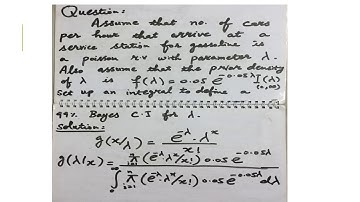 Question:
Assume that no. of cars
per hour that arrive at a
service station for gassoline is
a poisson r.v with parameter λ.
Also assume that the prior density
of λ is f(λ) = 0.05 e^{-0.05λ} I(λ)_{(0,∞)}
Set up an integral to define a
99% Bayes C.I for λ.
Solution:
g(x/λ) = e^{-λ}. λ^x / x!
g(λ|x) = π_{i=1}^{n} (e^{-λ} λ^x/x!) 0.05 e^{-0.05λ} / ∫_0^∞ π_{i=1}^{n} (e^{-λ} λ^x/x!) 0.05 e^{-0.05λ} dλ